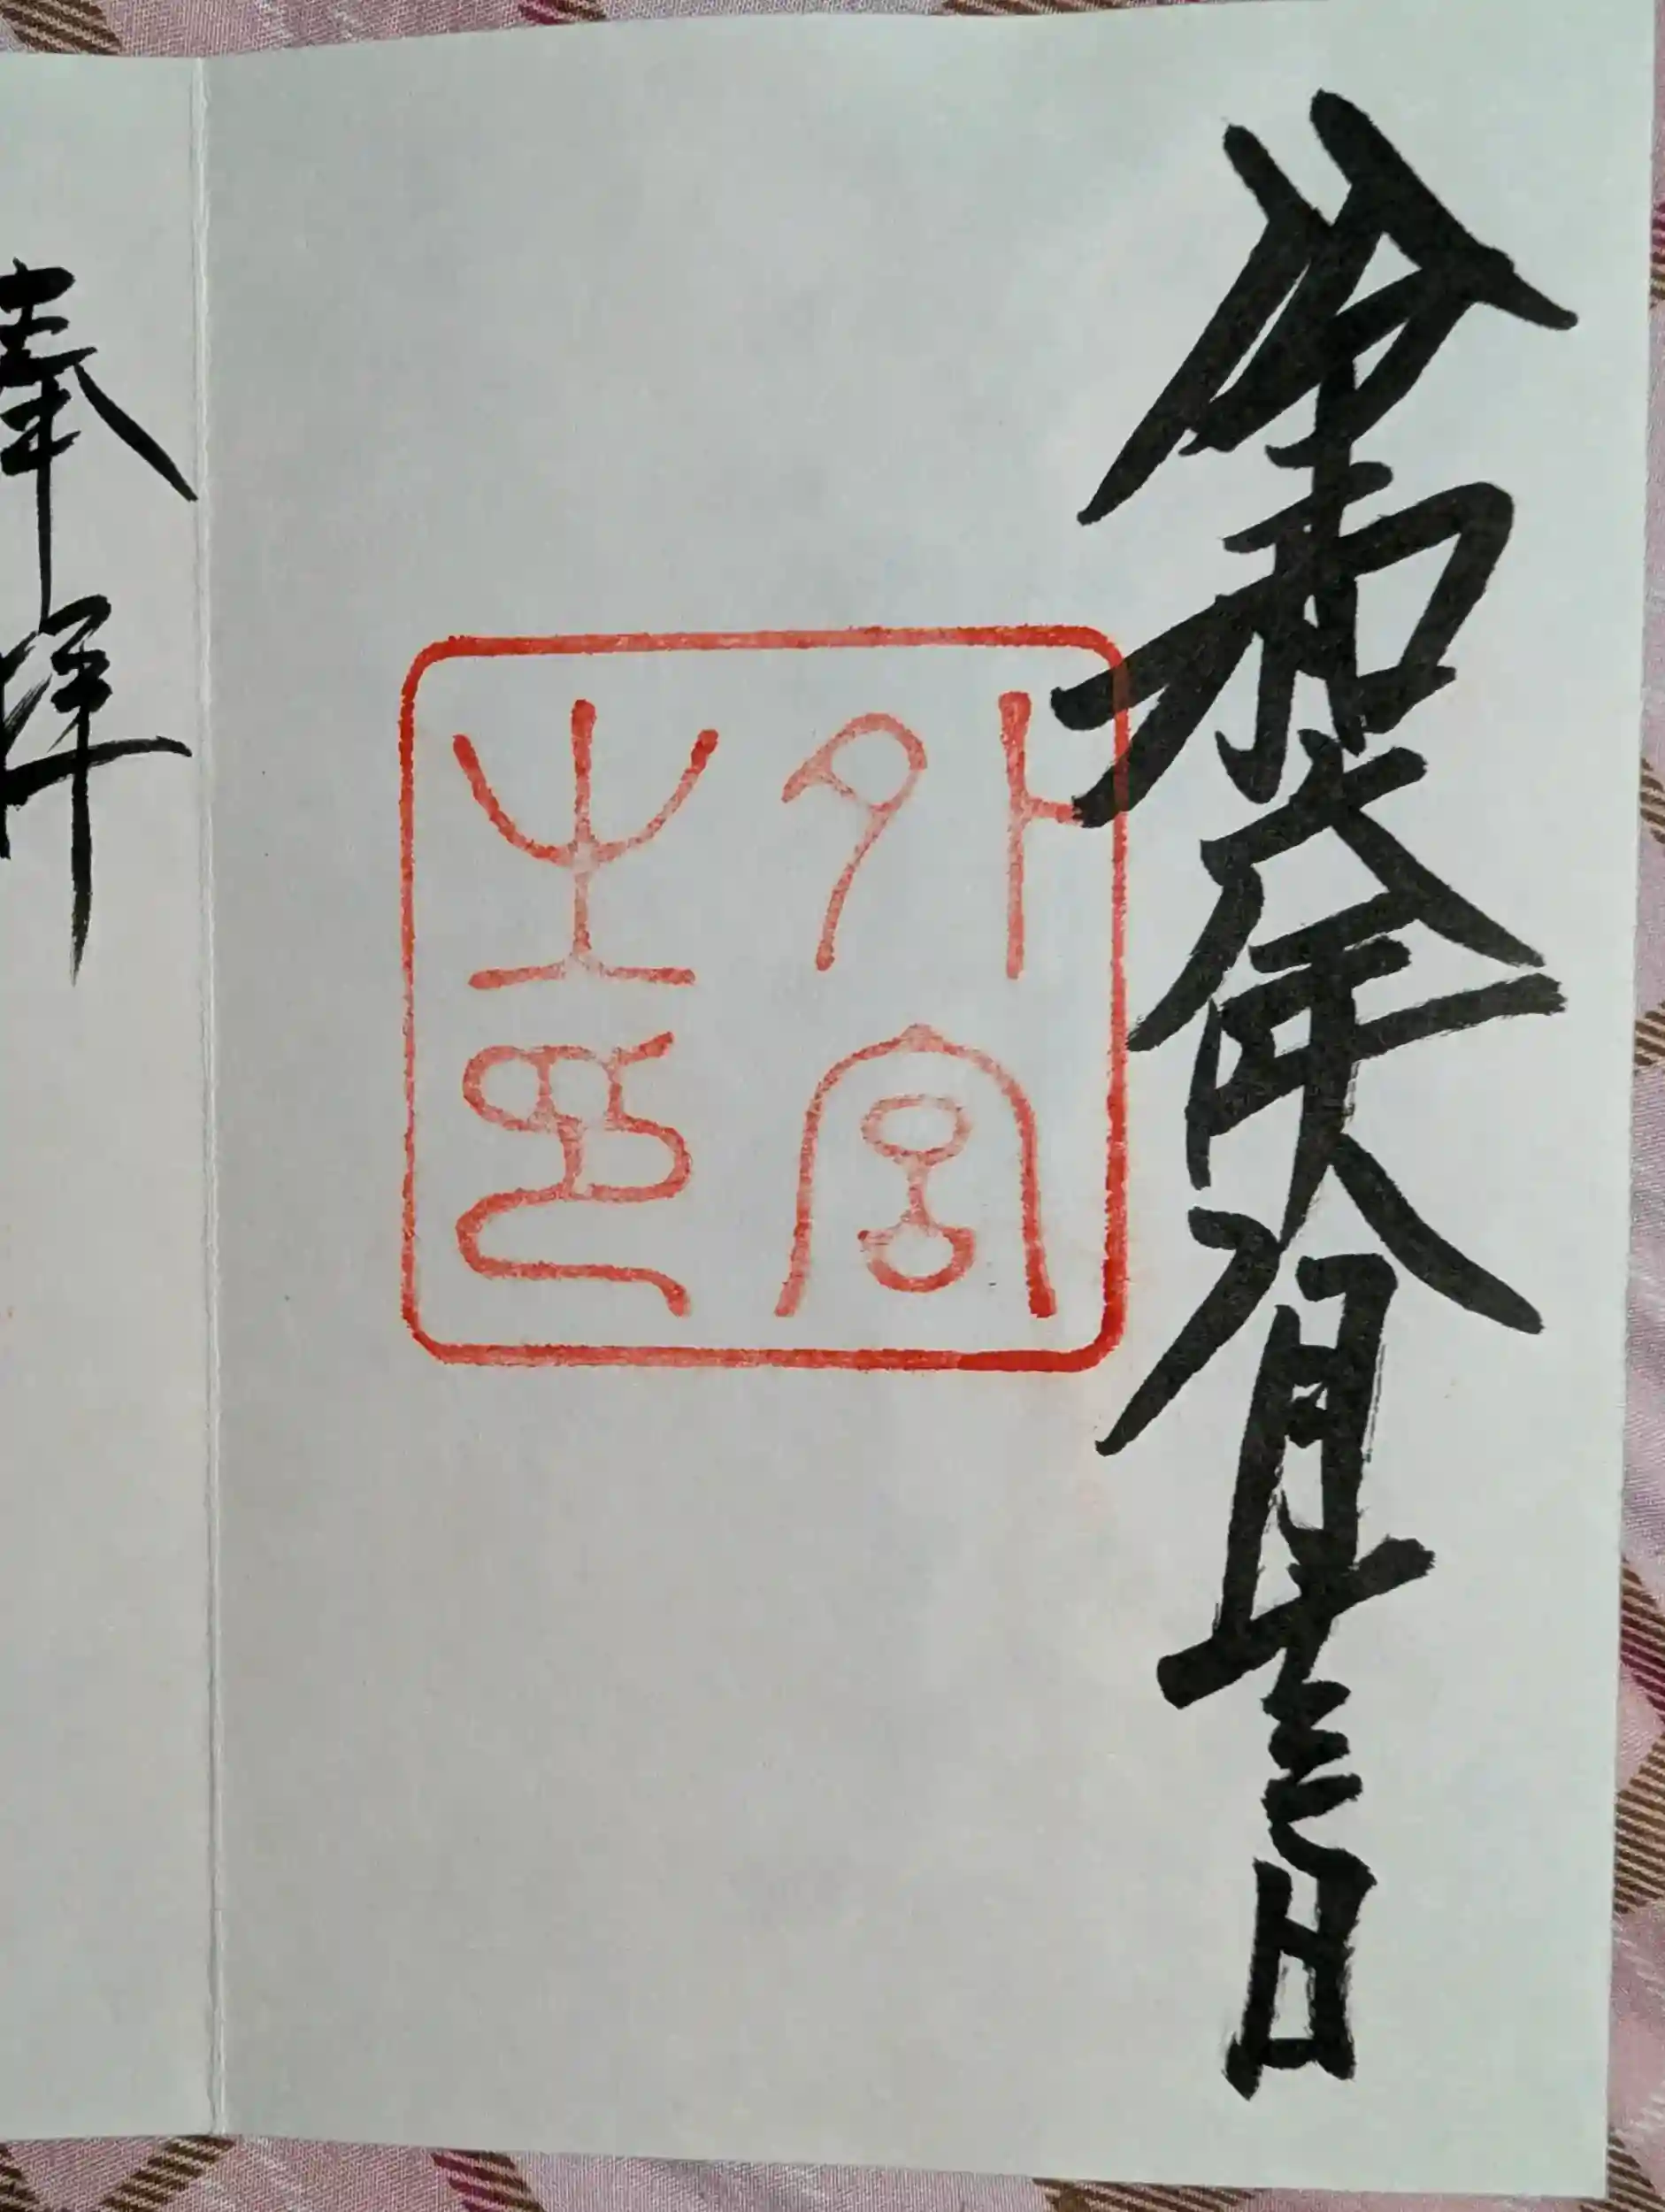 令和六年八月十三日
外宮
之印
奉拝